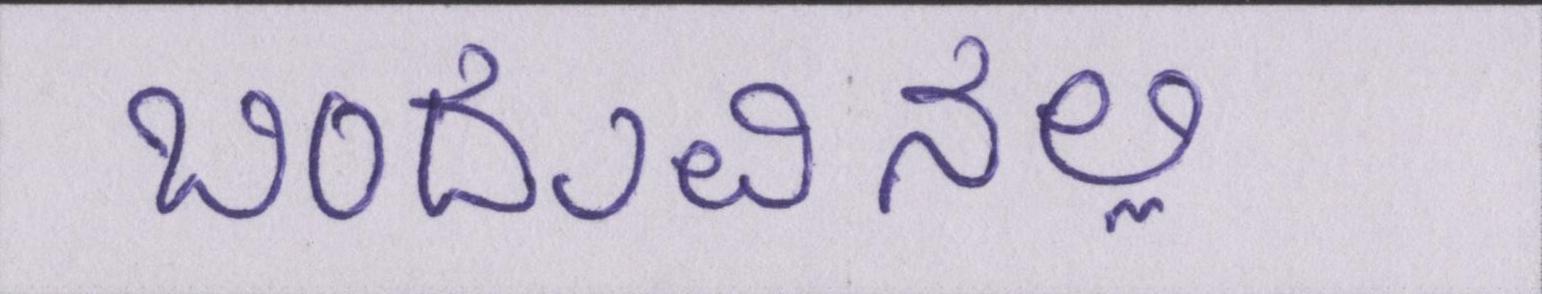 ಬಿಂದುವಿನಲ್ಲಿ